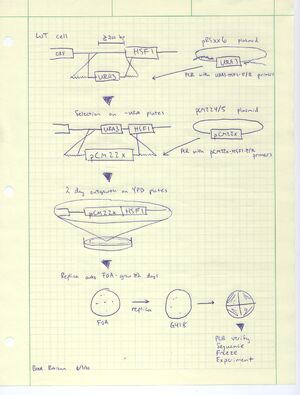 WT cell
≥200 bp
pRSxx6 plasmid
ORF
HSF1
URA3
URA3
PCR with URA3-HSF1-F/R primers
Selection on -URA plates
pCM224/5 plasmid
URA3
HSF1
pCM22x
pCM22x
PCR with pCM22x-HSF1-F/R primers
2 day outgrowth on YPD plates
pCM22x
HSF1
Replica onto FOA - grow 2 days
replica
FOA
G418
PCR verify
Sequence
Freeze
Experiment